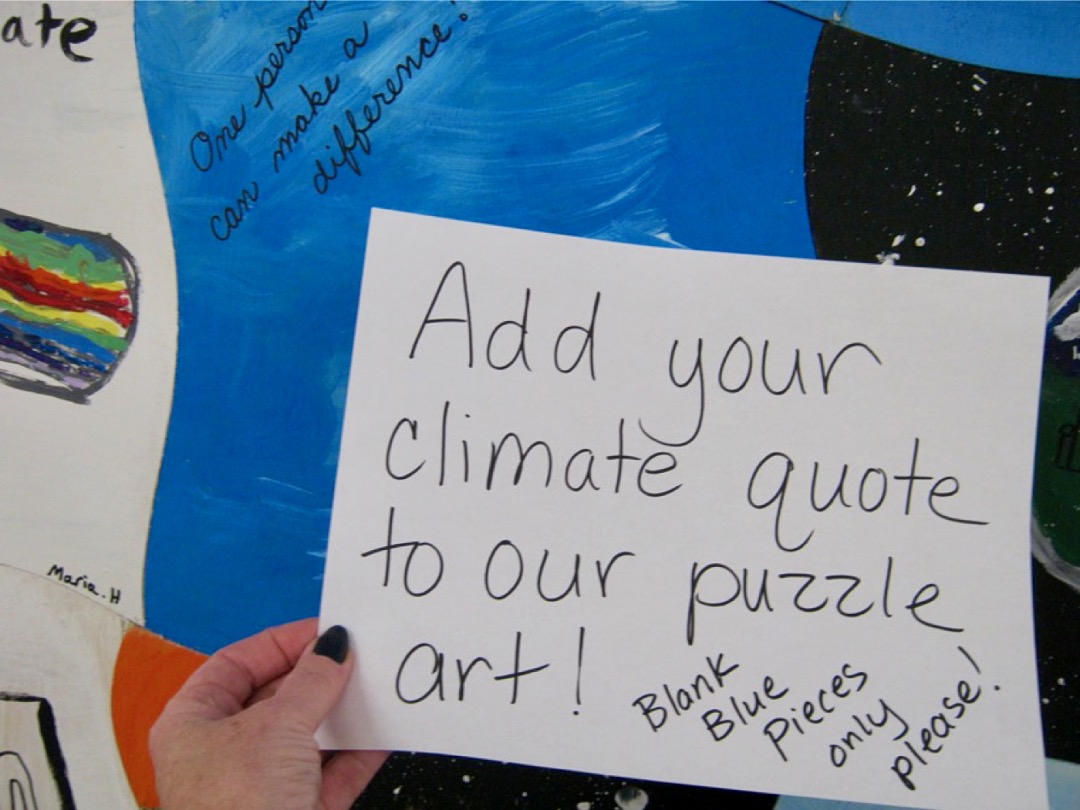 ate
One person
can make a
difference!
Add your
climate quote
to our puzzle
art!
Blank
Blue
Pieces
only
please!
Maria.H